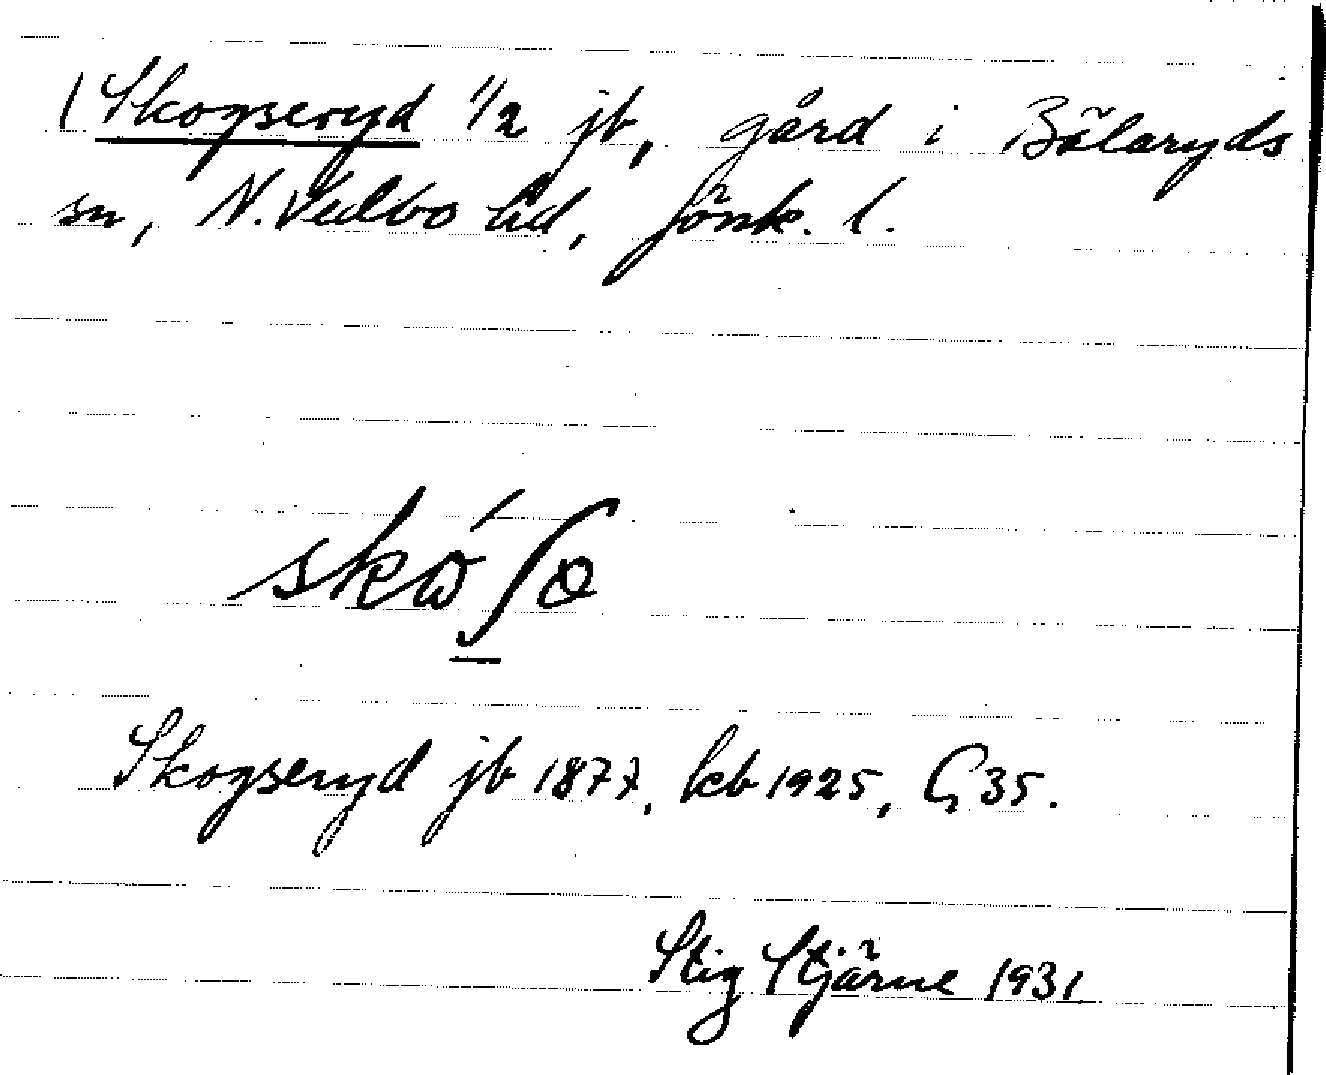 (Skogseryd 1/2 jb, gård i Bölaryds
sn, N. Vedbo hd, Jönk. l.
Skogseryd jb 1877, kb 1925, G 35.
Stig Stjärne 1931